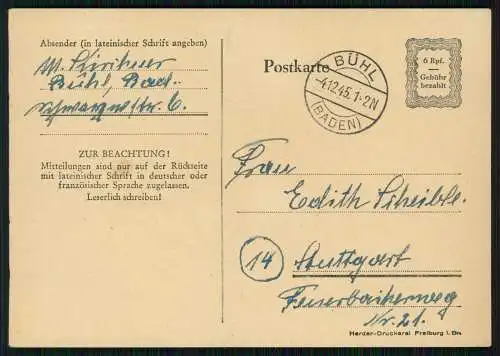 Absender (in lateinischer Schrift angeben)
Bühl, Bad.
ZUR BEACHTUNG!
Mitteilungen sind nur auf der Rückseite
mit lateinischer Schrift in deutscher oder
französischer Sprache zugelassen.
Leserlich schreiben!
Postkarte
BÜHL
-4.12.45.1-2N
(BADEN)
6 Rpf.
Gebühr
bezahlt
Frau
Edith Scheible
14 Stuttgart
Feuerbacherweg
Nr. 21.
Herder-Druckerei Freiburg i. Br.